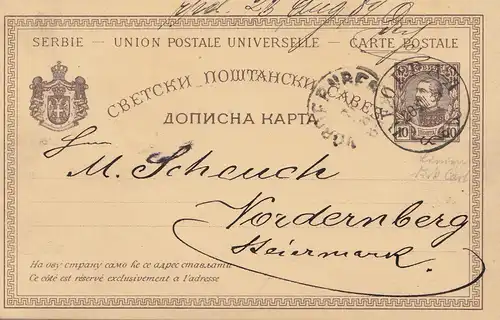 SERBIE - UNION POSTALE UNIVERSELLE - CARTE POSTALE
СВЕТСКИ ПОШТАНСКИ САВЕЗ
ДОПИСНА КАРТА
10 10
Herrn
M. Scheuch
Vordernberg
Steiermark.
На ову страну само ће се адрес стављати
Ce côté est réservé exclusivement à l'adresse